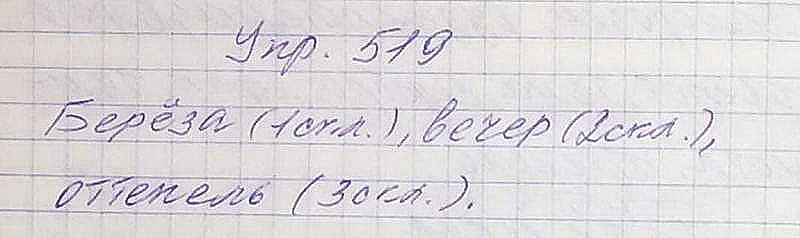 Упр. 519
Берёза (1скл.), вечер (2скл.),
оттепель (3скл.).